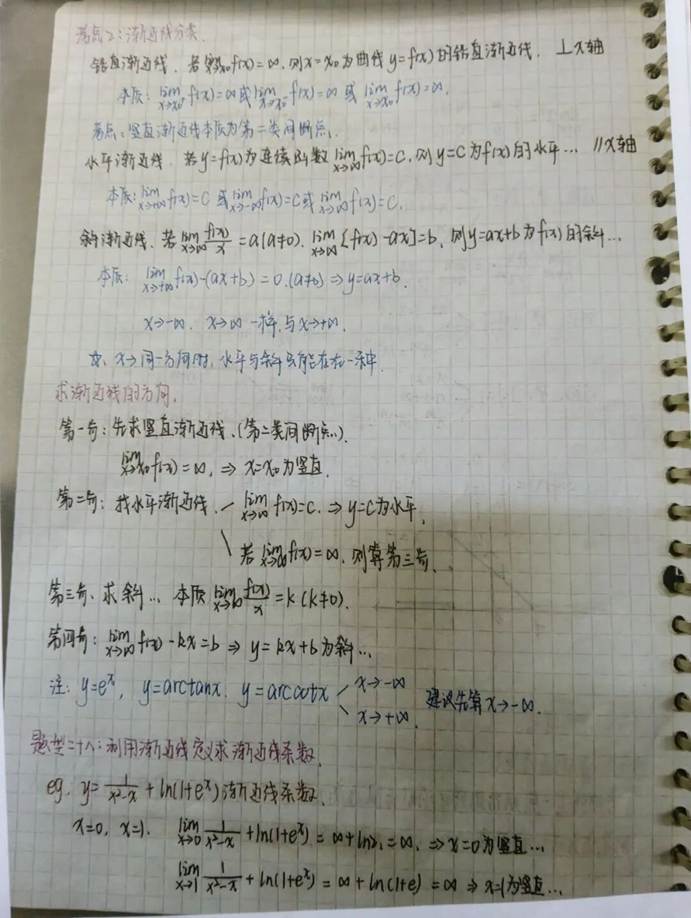 考点2:渐近线分类.
铅直渐近线. 若lim x→x₀ f(x)=∞, 则x=x₀为曲线y=f(x)的铅直渐近线. ⊥x轴
本质: lim x→x₀⁺ f(x)=∞ 或 lim x→x₀⁻ f(x)=∞ 或 lim x→x₀ f(x)=∞.
考点:竖直渐近线本质为第二类间断点.
水平渐近线. 若y=f(x)为连续函数 lim x→∞ f(x)=C, 则y=C为f(x)的水平… //x轴
本质: lim x→+∞ f(x)=C 或 lim x→-∞ f(x)=C 或 lim x→∞ f(x)=C.
斜渐近线. 若 lim x→∞ f(x)/x = a(a≠0). lim x→∞ [f(x)-ax]=b, 则y=ax+b为f(x)的斜…
本质: lim x→+∞ f(x)-(ax+b)=0.(a≠0) ⇒ y=ax+b.
x→-∞. x→∞ 一样与x→+∞.
x→同一方向时, 水平与斜只能存在一种.
求渐近线的方向.
第一步:先求竖直渐近线.(第二类间断点).
lim x→x₀ f(x)=∞, ⇒ x=x₀为竖直.
第二步: 找水平渐近线. lim x→∞ f(x)=C. ⇒ y=C为水平.
若 lim x→∞ f(x)=∞, 则算第三步.
第三步. 求斜… 本质 lim x→∞ f(x)/x = k (k≠0).
第四步: lim x→∞ f(x)-kx=b ⇒ y=kx+b为斜…
注: y=eˣ, y=arctanx. y=arccotx x→-∞ 建议先算x→-∞.
x→+∞.
题型二十八:利用渐近线定义求渐近线系数.
eg. y= 1/(x²-x) + ln(1+eˣ)渐近线系数.
x=0, x=1. lim x→0 1/(x²-x) + ln(1+eˣ) = ∞+ln2 = ∞. ⇒ x=0为竖直…
lim x→1 1/(x²-x) + ln(1+eˣ) = ∞+ln(1+e) = ∞ ⇒ x=1为竖直…